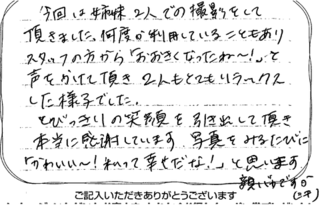 今回は姉妹2人での撮影をして
頂きました。何度か利用していることもあり
スタッフの方から「おおきくなったね〜!」と
声をかけて頂き2人もとてもリラックス
した様子でした。
とびっきりの笑顔を引き出して頂き
本当に感謝しています。写真をみるたびに
「かわいい〜!私って幸せだな!」と思います
親バカです
ご記入いただきありがとうございます